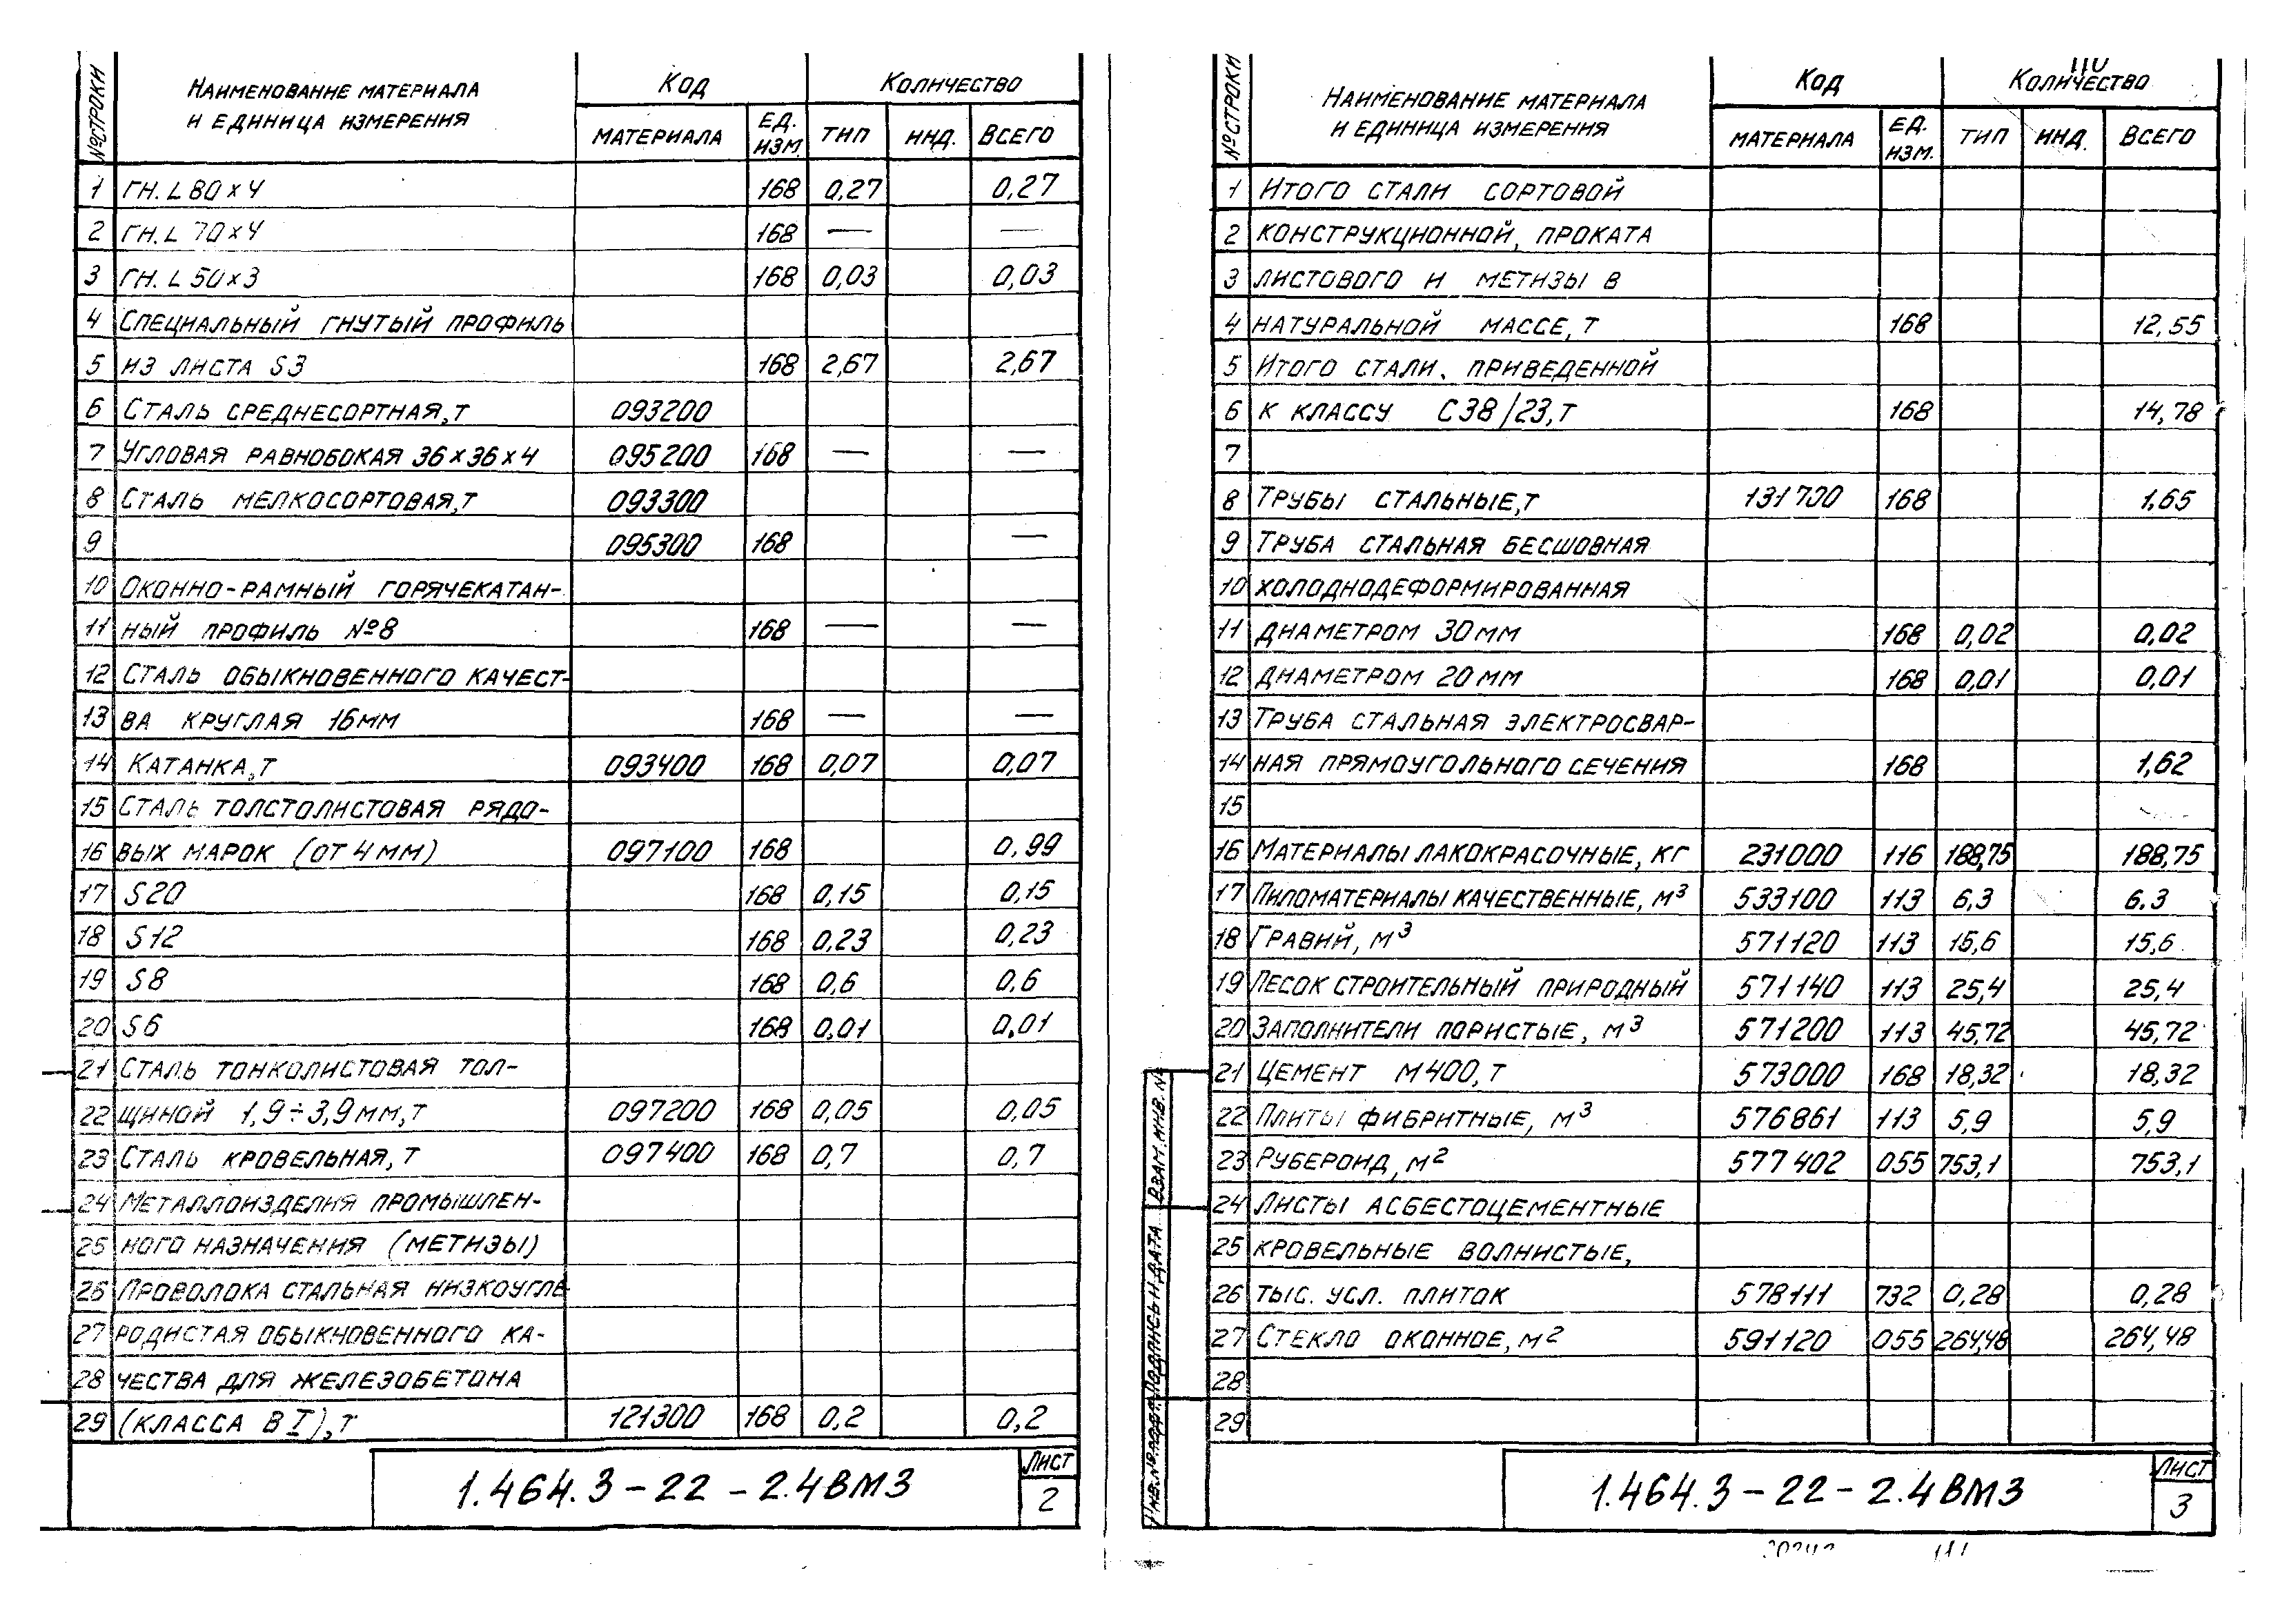 № строки Наименование материала Код Количество
и единица измерения материала ед. изм. тип инд. Всего
1 гн. L 80×4 168 0,27 0,27
2 гн. L 70×4 168 — —
3 гн. L 50×3 168 0,03 0,03
4 Специальный гнутый профиль
5 из листа S3 168 2,67 2,67
6 Сталь среднесортная, т 093200
7 Угловая равнобокая 36×36×4 095200 168 — —
8 Сталь мелкосортовая, т 093300
9 095300 168 —
10 Оконно-рамный горячекатан-
11 ный профиль №8 168 — —
12 Сталь обыкновенного качест-
13 ва круглая 16мм 168 — —
14 Катанка, т 093400 168 0,07 0,07
15 Сталь толстолистовая рядо-
16 вых марок (от 4мм) 097100 168 0,99
17 S20 168 0,15 0,15
18 S12 168 0,23 0,23
19 S8 168 0,6 0,6
20 S6 168 0,01 0,01
21 Сталь тонколистовая тол-
22 щиной 1,9÷3,9мм, т 097200 168 0,05 0,05
23 Сталь кровельная, т 097400 168 0,7 0,7
24 Металлоизделия промышлен-
25 ного назначения (метизы)
26 Проволока стальная низкоугле
27 родистая обыкновенного ка-
28 чества для железобетона
29 (класса В I), т 121300 168 0,2 0,2
1.464.3-22-2.4ВМ3
Лист
2
110
№ строки Наименование материала Код Количество
и единица измерения материала ед. изм. тип инд. Всего
1 Итого стали сортовой
2 конструкционной, проката
3 листового и метизы в
4 натуральной массе, т 168 12,55
5 Итого стали, приведенной
6 к классу С38/23, т 168 14,78
7
8 Трубы стальные, т 131700 168 1,65
9 Труба стальная бесшовная
10 холоднодеформированная
11 диаметром 30мм 168 0,02 0,02
12 диаметром 20мм 168 0,01 0,01
13 Труба стальная электросвар-
14 ная прямоугольного сечения 168 1,62
15
16 Материалы лакокрасочные, кг 231000 116 188,75 188,75
17 Пиломатериалы качественные, м³ 533100 113 6,3 6,3
18 Гравий, м³ 571120 113 15,6 15,6
19 Песок строительный природный 571140 113 25,4 25,4
20 Заполнители пористые, м³ 571200 113 45,72 45,72
21 Цемент М400, т 573000 168 18,32 18,32
22 Плиты фибритные, м³ 576861 113 5,9 5,9
23 Рубероид, м² 577402 055 753,1 753,1
24 Листы асбестоцементные
25 кровельные волнистые,
26 тыс. усл. плиток 578111 732 0,28 0,28
27 Стекло оконное, м² 591120 055 264,48 264,48
28
29
Инв.№ подл. Подпись и дата Взам. инв. №
1.464.3-22-2.4ВМ3
Лист
3